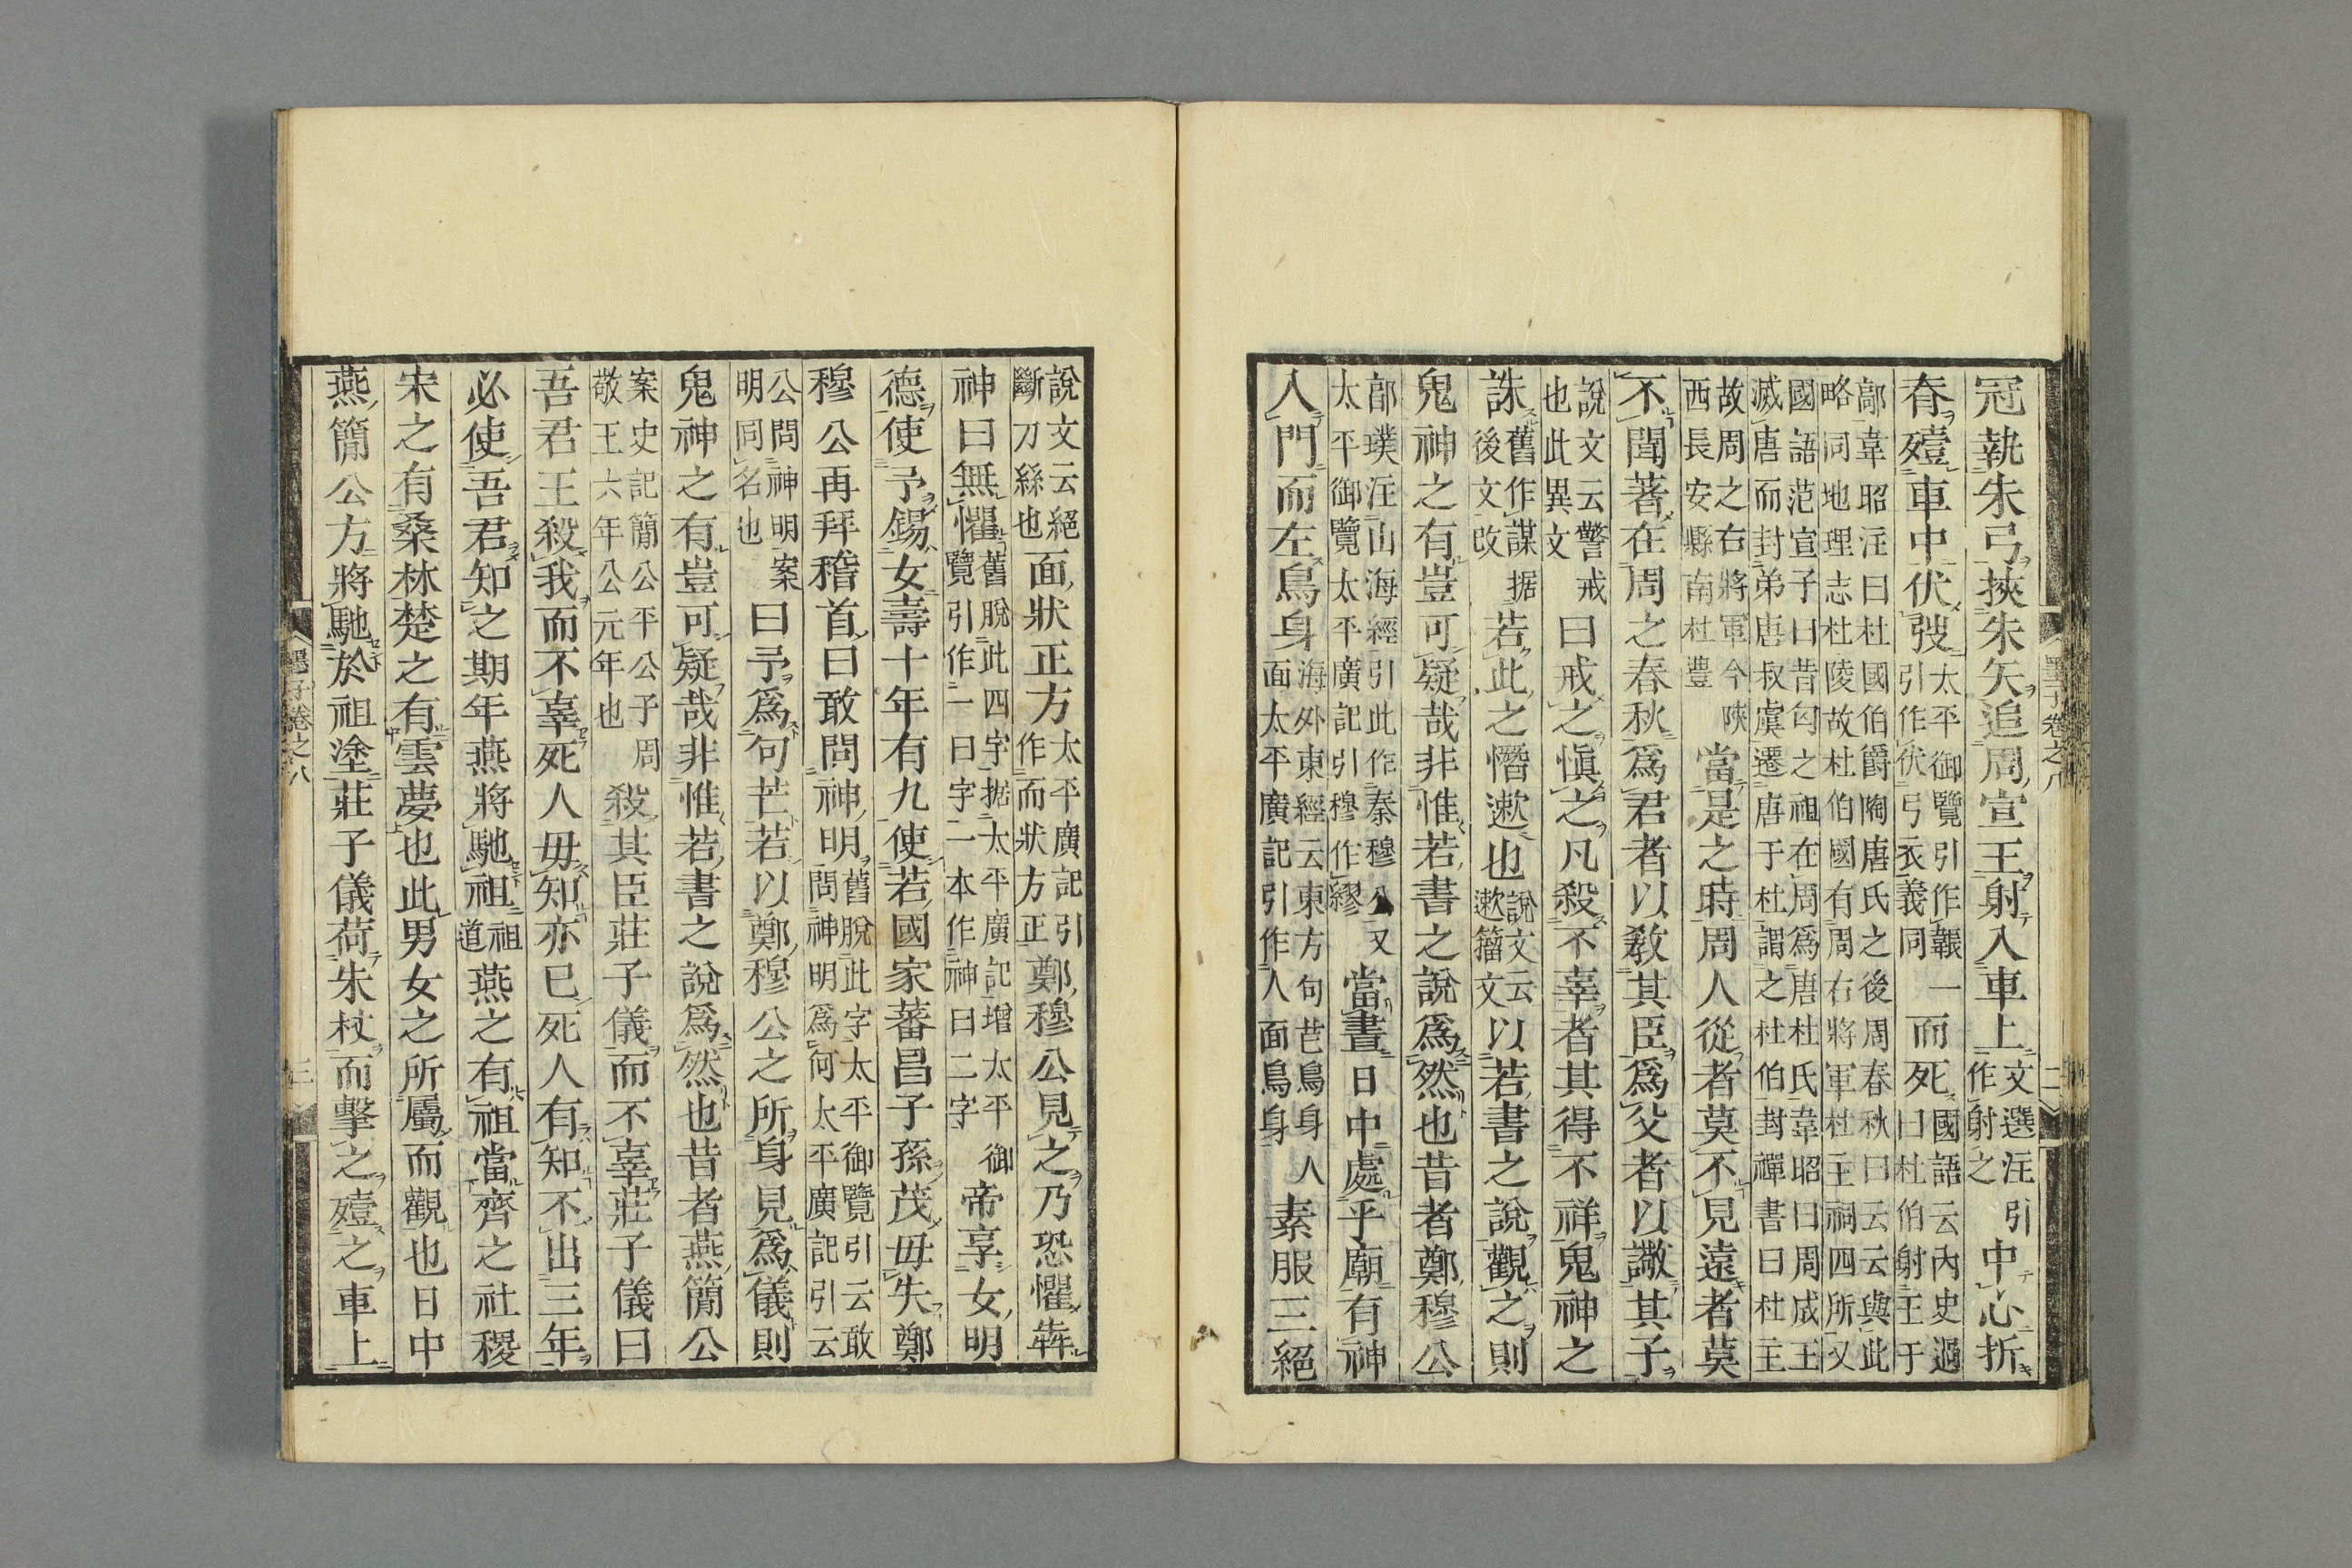 冠執朱弓挾朱矢追周宣王射入車上文選注引作射之中心折
脊殪車中伏弢太平御覽引作韔一引作伏弓衣義同而死國語云內史過曰杜伯射王于
鄗韋昭注曰杜國伯爵陶唐氏之後周春秋曰云云與此略同地理志杜陵故杜伯國有周右將軍杜主祠四所又
國語范宣子曰昔匄之祖在周爲唐杜氏韋昭曰周成王滅唐而封弟唐叔虞遷唐于杜謂之杜伯封禪書曰杜主
故周之右將軍今陝西長安縣南杜豐當是之時周人從者莫不見遠者莫
不聞著在周之春秋爲君者以教其臣爲父者以譤其子
說文云警戒也此異文曰戒之慎之凡殺不辜者其得不祥鬼神之
誅舊作謀据後文改若此之憯遫也說文云遫籀文以若書之說觀之則
鬼神之有豈可疑哉非惟若書之說爲然也昔者鄭穆公
郭璞注山海經引此作秦穆公又太平御覽太平廣記引穆作繆當晝日中處乎廟有神
入門而左鳥身海外東經云東方句芒鳥身人面太平廣記引作人面鳥身素服三絕
墨子卷之八 二
說文云絕斷刀絲也面狀正方太平廣記引作而狀方正鄭穆公見之乃恐懼犇
神曰無懼舊脫此四字据太平廣記增太平御覽引作一曰字二本作神曰二字帝享女明
德使予錫女壽十年有九使若國家蕃昌子孫茂毋失鄭
穆公再拜稽首曰敢問神明舊脫此字太平御覽引云敢問神明爲何太平廣記引云
公問神明案明同名也曰予爲句芒若以鄭穆公之所身見爲儀則
鬼神之有豈可疑哉非惟若書之說爲然也昔者燕簡公
案史記簡公平公子周敬王六年公元年也殺其臣莊子儀而不辜莊子儀曰
吾君王殺我而不辜死人毋知亦已死人有知不出三年
必使吾君知之期年燕將馳祖祖道燕之有祖當齊之社稷
宋之有桑林楚之有雲夢也此男女之所屬而觀也日中
燕簡公方將馳於祖塗莊子儀荷朱杖而擊之殪之車上
墨子卷之八 三